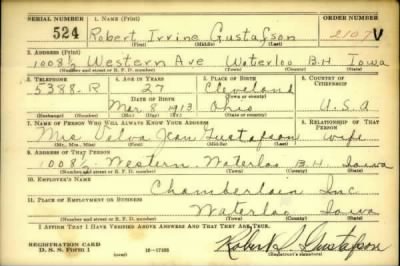 SERIAL NUMBER 1. NAME (Print) ORDER NUMBER
524 Robert Irvine Gustafson 2107 V
(First) (Middle) (Last)
2. ADDRESS (Print)
1008½ Western Ave Waterloo B.H. Iowa
(Number and street or R. F. D. number) (Town) (County) (State)
3. TELEPHONE 4. AGE IN YEARS 5. PLACE OF BIRTH 6. COUNTRY OF CITIZENSHIP
5388-R 27 Cleveland
DATE OF BIRTH (Town or county)
Mar. 8 1913 Ohio U.S.A
(Exchange) (Number) (Mo.) (Day) (Yr.) (State or country)
7. NAME OF PERSON WHO WILL ALWAYS KNOW YOUR ADDRESS 8. RELATIONSHIP OF THAT PERSON
Mrs Velva Jean Gustafson wife
(Mr., Mrs., Miss) (First) (Middle) (Last)
9. ADDRESS OF THAT PERSON
1008½ Western Waterloo B.H. Iowa
(Number and street or R. F. D. number) (Town) (County) (State)
10. EMPLOYER'S NAME
Chamberlain Inc
11. PLACE OF EMPLOYMENT OR BUSINESS
Waterloo Iowa
(Number and street or R. F. D. number) (Town) (County) (State)
I AFFIRM THAT I HAVE VERIFIED ABOVE ANSWERS AND THAT THEY ARE TRUE.
REGISTRATION CARD
D. S. S. Form 1 16-17105 Robert I. Gustafson
(Registrant's signature)